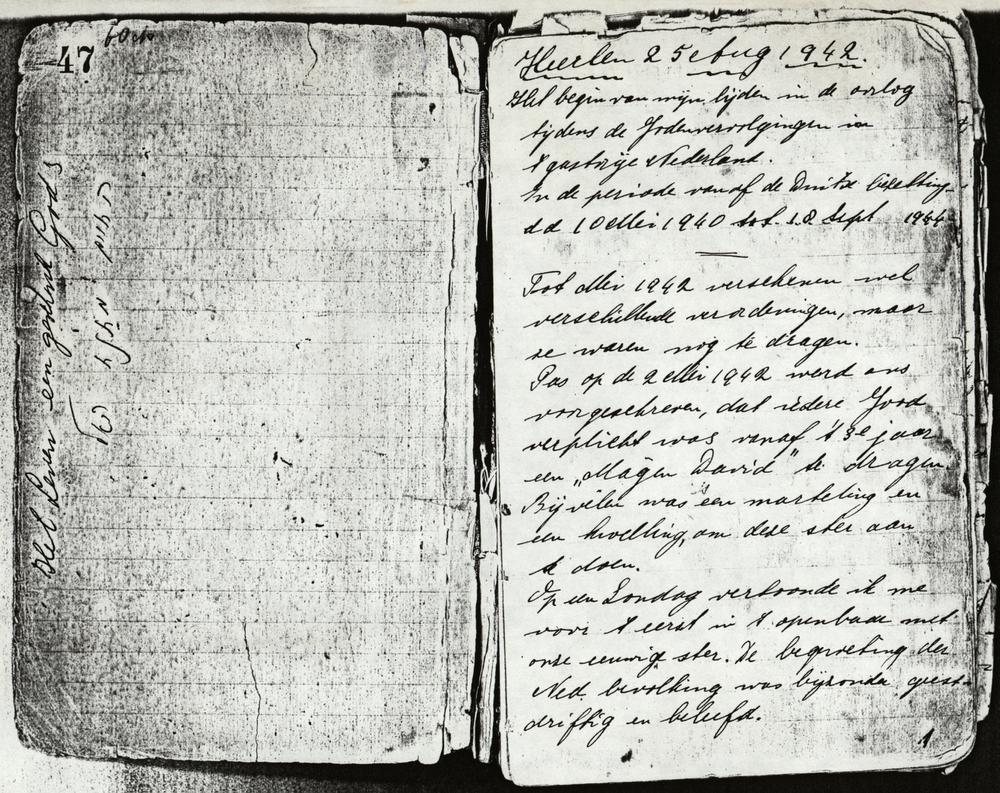 47
Het Leven een geschenk God's
Heerlen 25e Aug 1942.
Het begin van mijn lijden in de oorlog
tijdens de Jodenvervolgingen in
't gastvrije Nederland.
In de periode vanaf de Duitse bezetting
d d 10 Mei 1940 tot 18 Sept 1944
Tot Mei 1942 verschenen wel
verschillende verordeningen, maar
ze waren nog te dragen.
Pas op de 2 Mei 1942 werd ons
voorgeschreven, dat iedere Jood
verplicht was vanaf 't 3e jaar
een „Magen David" te dragen
Bij velen was een marteling en
een kwelling, om deze ster aan
te doen.
Op een Zondag vertoonde ik me
voor 't eerst in 't openbaar met
onze eeuwige ster. De begroeting der
Ned. bevolking was bijzonder geest-
driftig en beleefd.
1